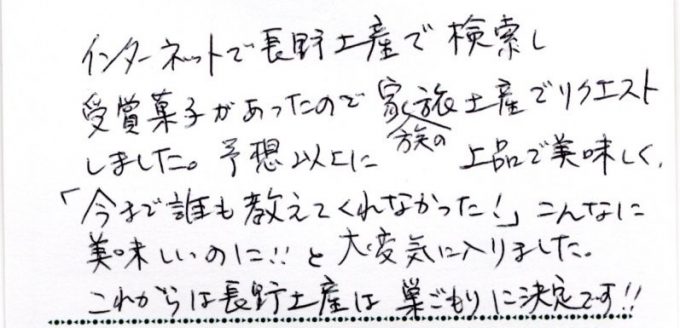 インターネットで長野土産で検索し
受賞菓子があったので家族の旅土産でリクエスト
しました。予想以上に上品で美味しく、
「今まで誰も教えてくれなかった!」こんなに
美味しいのに!!と大変気に入りました。
これからは長野土産は巣ごもりに決定です!!